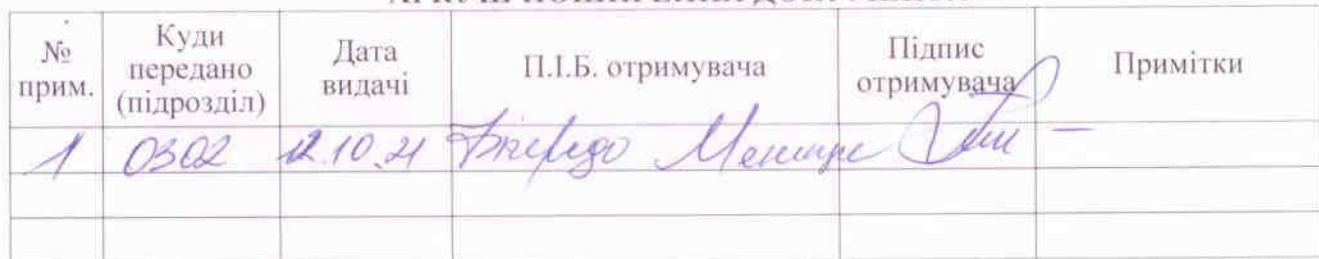 № прим. Куди передано (підрозділ) Дата видачі П.І.Б. отримувача Підпис отримувача Примітки
1 0302 12.10.21 —